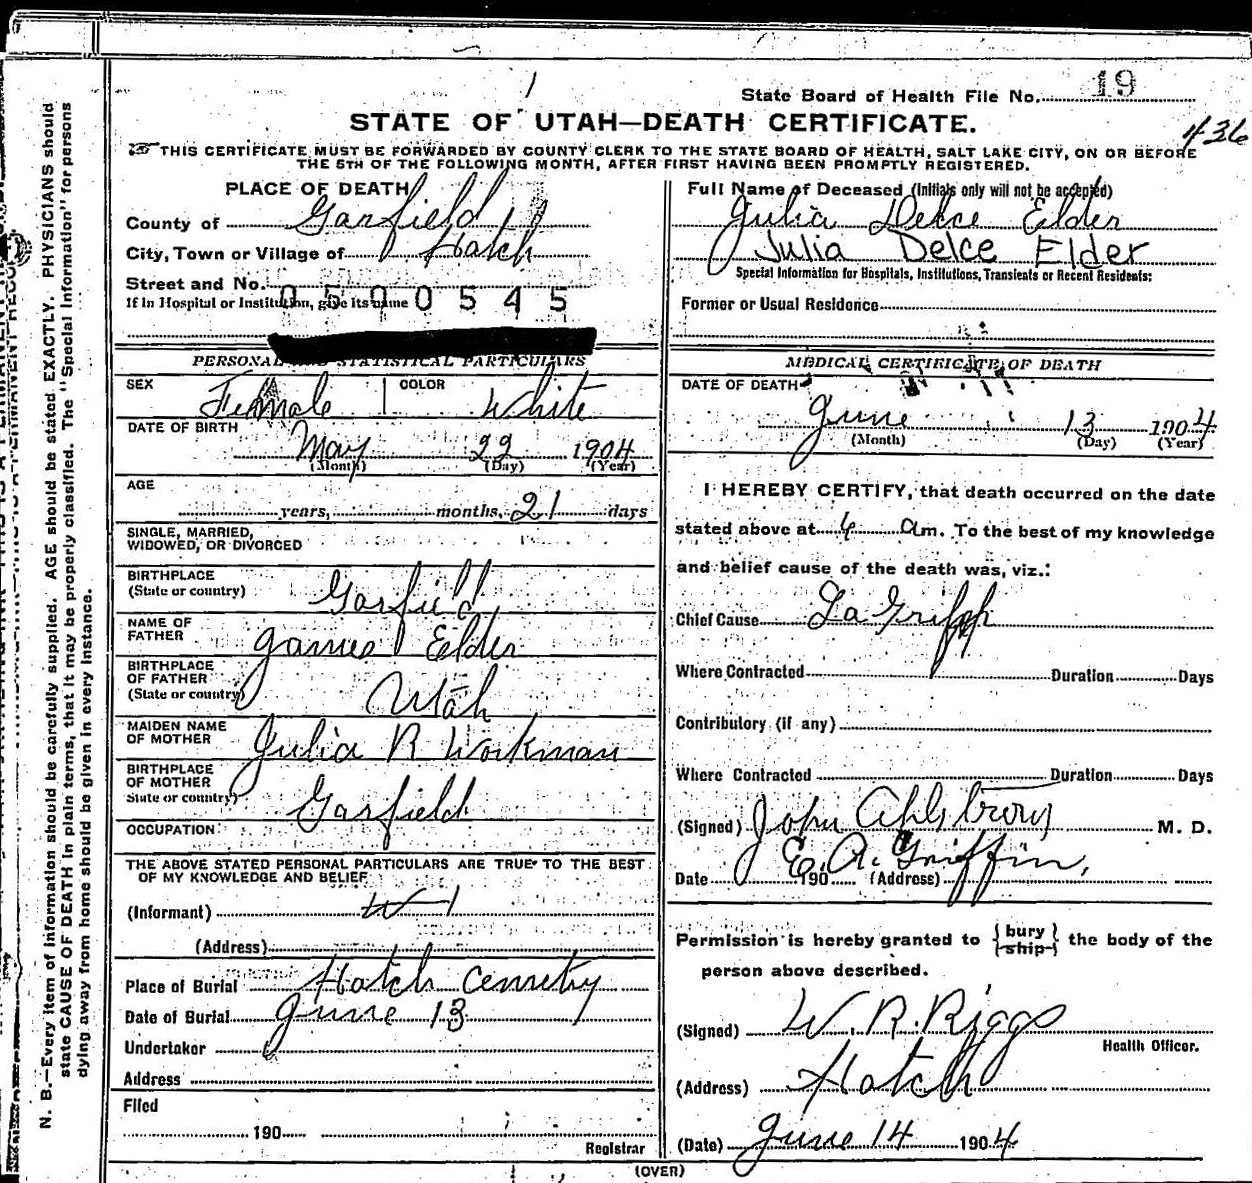 State Board of Health File No. 19
STATE OF UTAH—DEATH CERTIFICATE.
436
THIS CERTIFICATE MUST BE FORWARDED BY COUNTY CLERK TO THE STATE BOARD OF HEALTH, SALT LAKE CITY, ON OR BEFORE
THE 5TH OF THE FOLLOWING MONTH, AFTER FIRST HAVING BEEN PROMPTLY REGISTERED.
PLACE OF DEATH
County of Garfield
City, Town or Village of Hatch
Street and No.
If in Hospital or Institution, give its name 0500545
PERSONAL AND STATISTICAL PARTICULARS
SEX Female COLOR White
DATE OF BIRTH
May 22 1904
(Month) (Day) (Year)
AGE
years, months, 21 days
SINGLE, MARRIED,
WIDOWED, OR DIVORCED
BIRTHPLACE
(State or country) Garfield
NAME OF
FATHER James Elder
BIRTHPLACE
OF FATHER
(State or country) Utah
MAIDEN NAME
OF MOTHER Julia R Workman
BIRTHPLACE
OF MOTHER
State or country) Garfield
OCCUPATION
THE ABOVE STATED PERSONAL PARTICULARS ARE TRUE TO THE BEST
OF MY KNOWLEDGE AND BELIEF
(Informant)
(Address)
Place of Burial Hatch Cemetry
Date of Burial June 13
Undertaker
Address
Filed
190
Registrar
Full Name of Deceased (Initials only will not be accepted)
Julia Delce Elder
Julia Delce Elder
Special Information for Hospitals, Institutions, Transients or Recent Residents:
Former or Usual Residence
MEDICAL CERTIFICATE OF DEATH
DATE OF DEATH
June 13 1904
(Month) (Day) (Year)
I HEREBY CERTIFY, that death occurred on the date
stated above at 4 a m. To the best of my knowledge
and belief cause of the death was, viz.:
Chief Cause La Gripp
Where Contracted Duration Days
Contributory (if any)
Where Contracted Duration Days
(Signed) John Ahlstrom M. D.
E. A. Griffin,
Date 190 (Address)
Permission is hereby granted to { bury ship } the body of the
person above described.
(Signed) W. R. Riggs
Health Officer.
(Address) Hatch
(Date) June 14 1904
(OVER)
N. B.—Every item of information should be carefully supplied. AGE should be stated EXACTLY. PHYSICIANS should
state CAUSE OF DEATH in plain terms, that it may be properly classified. The "Special Information" for persons
dying away from home should be given in every instance.